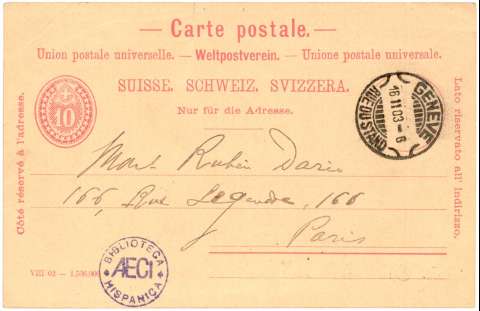 — Carte postale. —
Union postale universelle. — Weltpostverein. — Unione postale universale.
SUISSE. SCHWEIZ. SVIZZERA.
Nur für die Adresse.
10
Côté réservé à l'adresse.
Lato riservato all' indirizzo.
GENÈVE
16 II 03 – 6
Rubén Dario
166, Rue Legendre, 166
Paris
BIBLIOTECA
AECI
HISPANICA
VIII 02 — 1,500,000